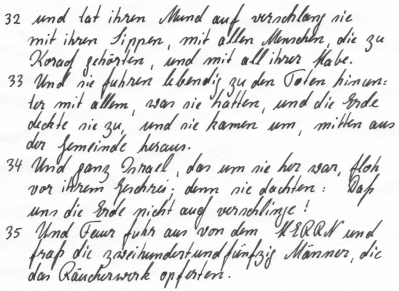 32 und tat ihren Mund auf verschlang sie
mit ihren Sippen, mit allen Menschen, die zu
Korach gehörten, und mit all ihrer Habe.
33 Und sie fuhren lebendig zu den Toten hinun=
ter mit allem, was sie hatten, und die Erde
deckte sie zu, und sie kamen um, mitten aus
der Gemeinde heraus.
34 Und ganz Israel, das um sie her war, floh
vor ihrem Geschrei; denn sie dachten: Daß
uns die Erde nicht auch verschlinge!
35 Und Feuer fuhr aus von dem HERRN und
fraß die zweihundertundfünfzig Männer, die
das Räucherwerk opferten.